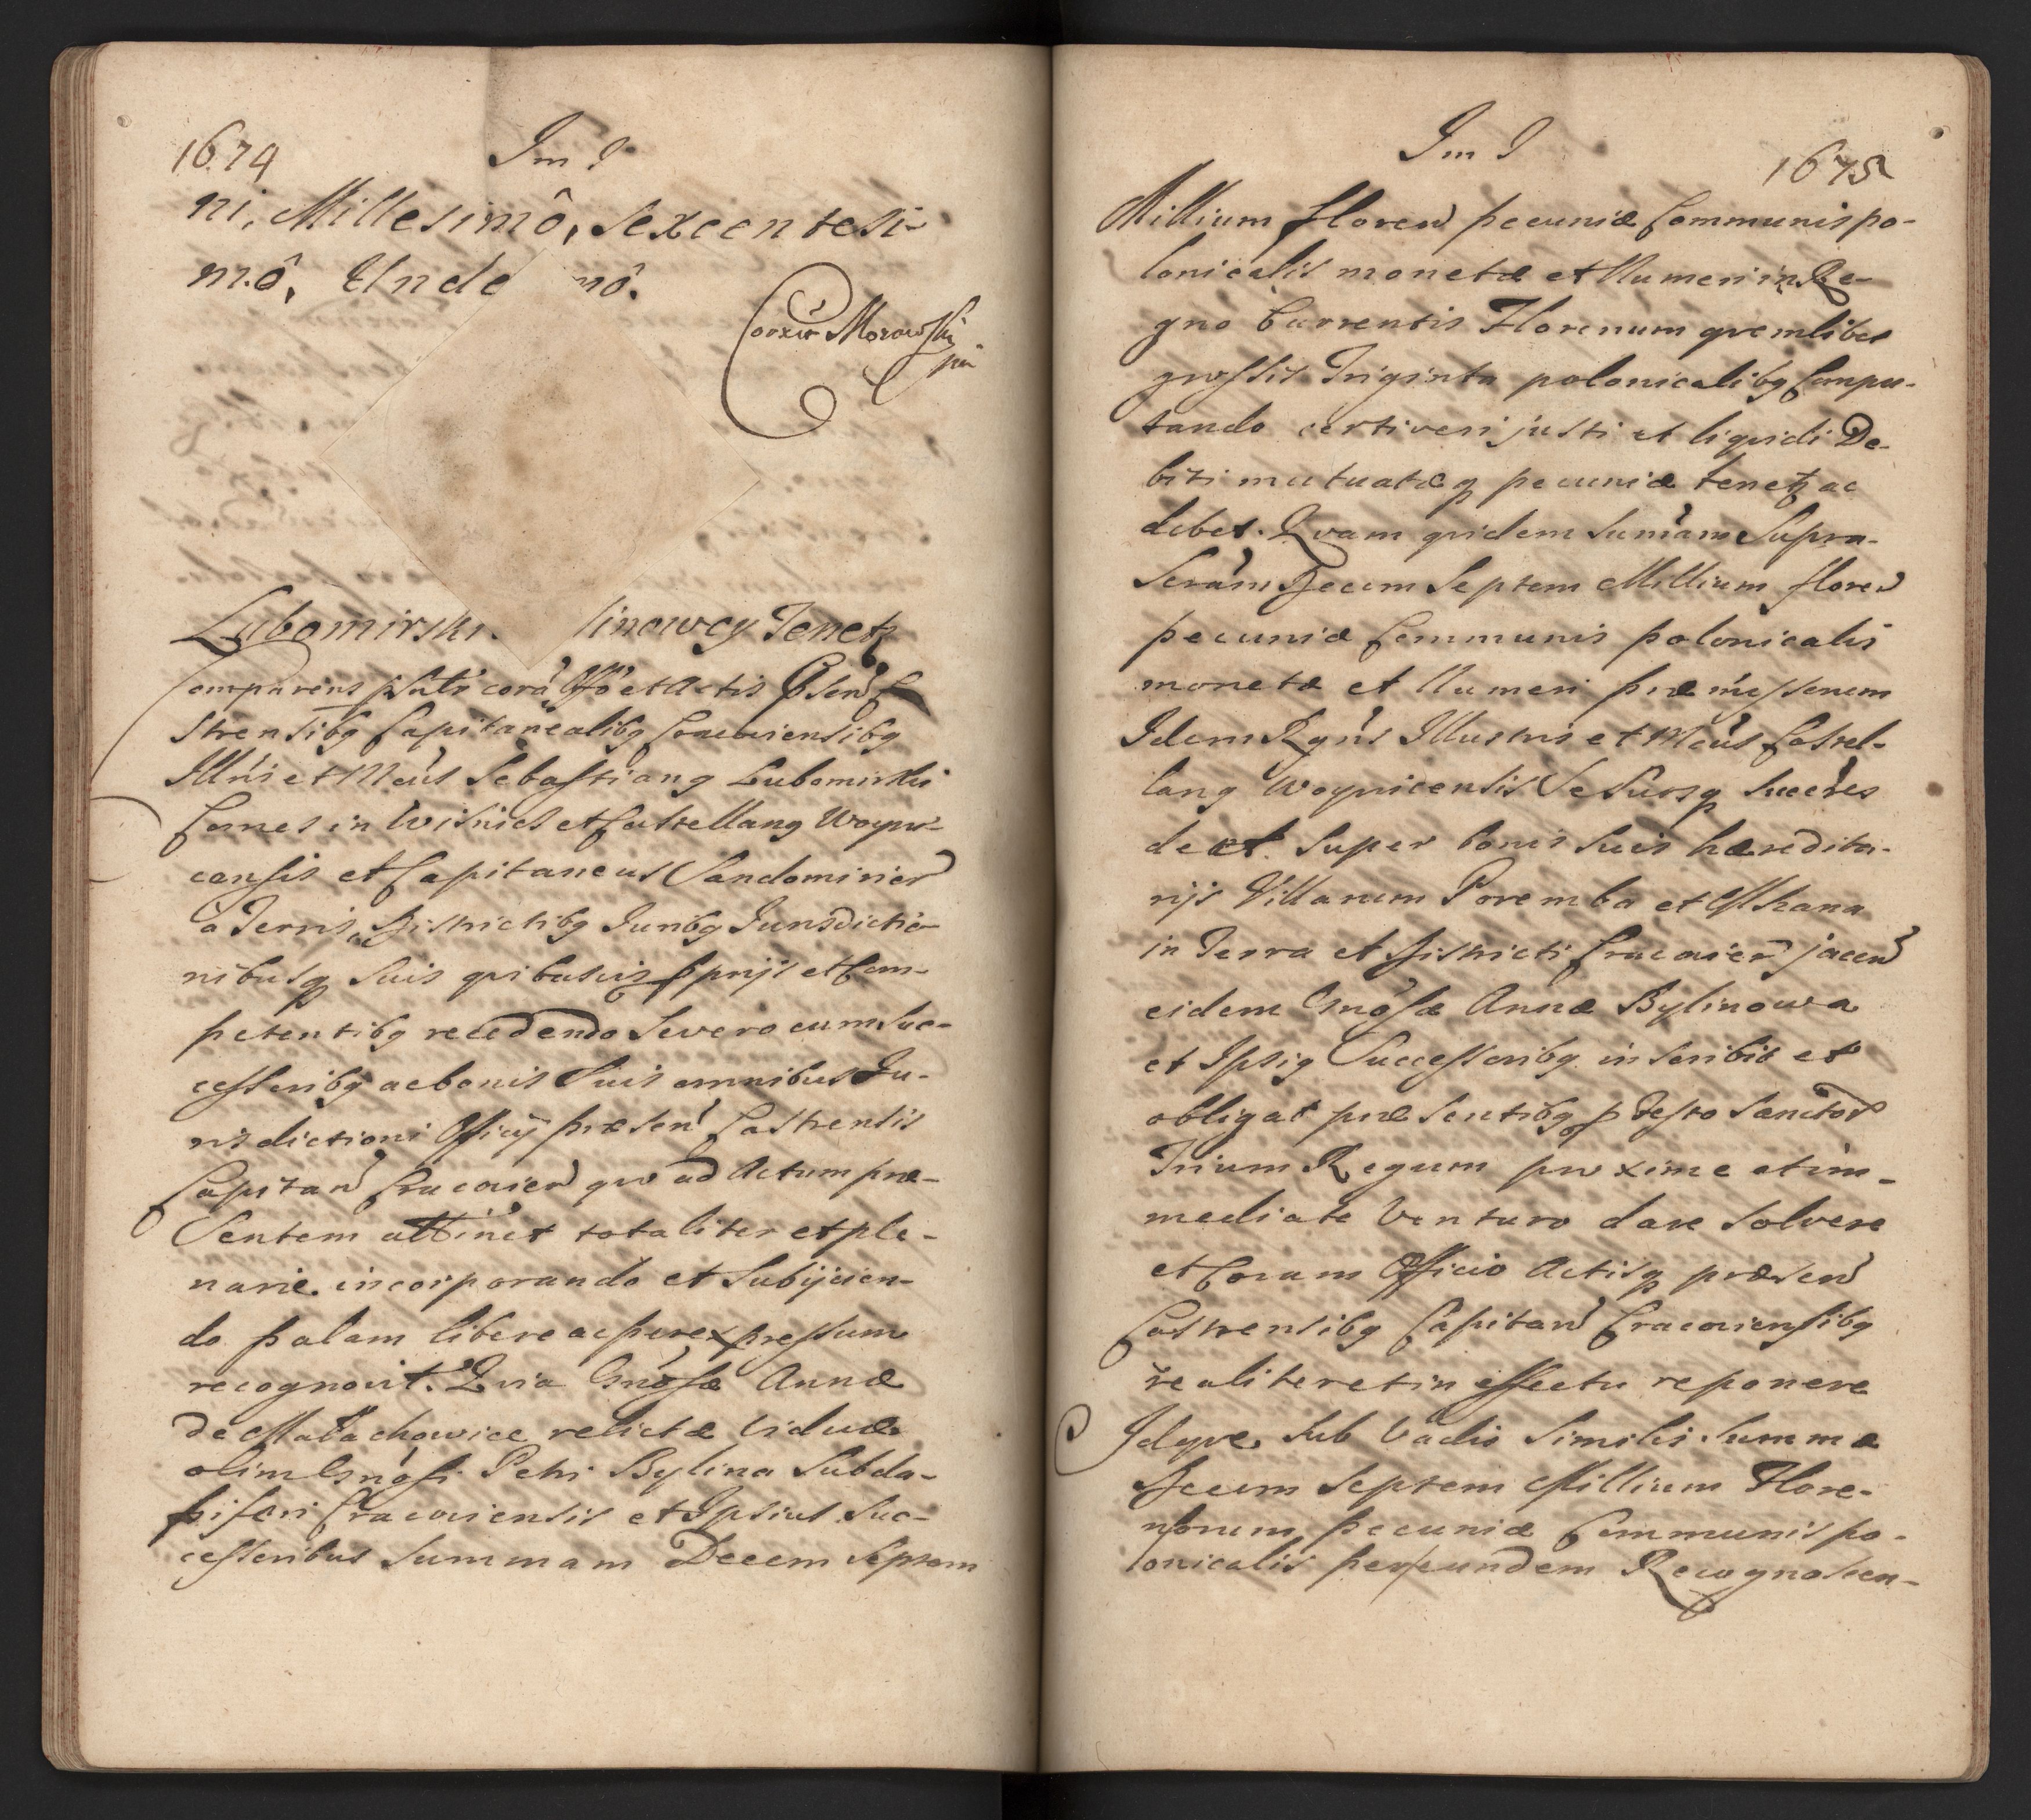 1674
Im I
ni, Millesimô, sexcentesi-
mô, Unde mô.
Correxit Morawski
mp
Lubomirski linowey Tenetz
Comparens psäls corā Offō et Actis psen̄ Ca
strensibq Capitanealibq Cracoviensibq
Illris et Mcus Sebastianq Lubomirski
Comes in Wisnicz et Castellanq Woyni-
censis et Capitaneus Sandomirien̄
a Terris, Districtibq Juribq Jurisdictio-
nibusq suis quibusvis pprijs et Com-
petentibq recedendo Severo cum suc-
cessoribq ac bonis suis omnibus Ju-
risdictioni Officij præsen̄ Castrensis
Capitan̄ Cracovien̄ quo ad Actum præ-
sentem attinet totaliter et ple-
narie incorporando et subijcien-
do palam libere ac per expressum
recognovit. Quia Gnosæ Annæ
de Małachowice relictæ viduæ
olim Gnosi Petri Bylina Subda-
piferi Cracoviensis et Ipsius suc-
cessoribus summam Decem Septem
Im I
1675
Millium floren̄ pecuniæ Communis po-
lonicalis monetæ et Numeri in Re-
gno Currentis Florenum quemlibet
grossis Triginta polonicalibq Compu-
tando certi veri justi et liquidi De-
biti mutuatæq pecuniæ tenetz ac
debet. Quam quidem sumam Supra-
scram Decem Septem Millium floren̄
pecuniæ Communis polonicalis
monetæ et Numeri præmissorum
Idem Rgns Illustris et Mcus Castel-
lanq Woynicensis Se Suosq succres
de et super bonis suis hæredita-
rijs Villarum Poremba et Mhana
in Terra et Districti Cracovien̄ jacen̄
eidem Gnosæ Annæ Bylinowa
et Ipsiq Successoribq inscribit et
obligat præsentibq p Festo Sanctor̄
Trium Regum proxime et im-
mediate Venturo dare solvere
et Coram Officio Actisq præsen̄
Castrensibq Capitan̄ Cracoviensibq
realiter et in effectu reponere
Idqve sub Vadio simili summæ
Decem Septem Millium Flore-
norum pecuniæ Communis po-
lonicalis per eundem Recognoscen-